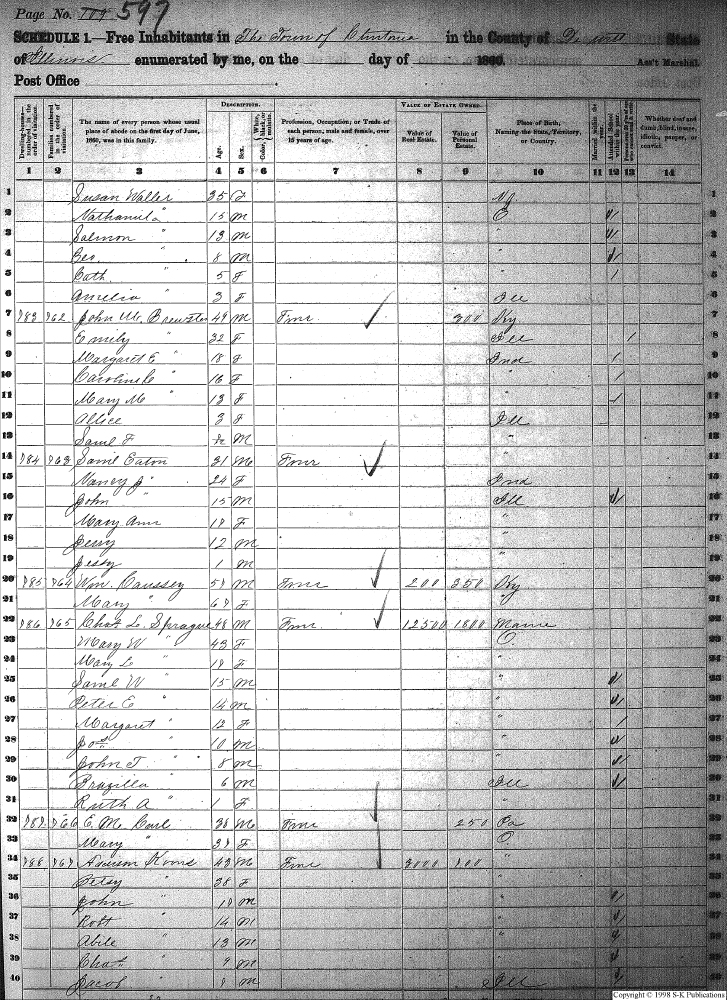 Page No. 597
SCHEDULE 1.—Free Inhabitants in The Town of Clintonia in the County of De Witt State
of Illinois enumerated by me, on the day of 1860. Ass't Marshal.
Post Office
Dwelling-houses—numbered in the order of visitation.
Families numbered in the order of visitation.
The name of every person whose usual place of abode on the first day of June, 1860, was in this family.
DESCRIPTION.
Age.
Sex.
Color, White, black, or mulatto.
Profession, Occupation, or Trade of each person, male and female, over 15 years of age.
VALUE OF ESTATE OWNED.
Value of Real Estate.
Value of Personal Estate.
Place of Birth, Naming the State, Territory, or Country.
Married within the year.
Attended School within the year.
Whether deaf and dumb, blind, insane, idiotic, pauper, or convict.
1 2 3 4 5 6 7 8 9 10 11 12 13 14
1 Susan Waller 35 F 1
2 Nathaniel " 15 M O 2
3 Salmon " 13 M " 3
4 Geo. " 8 M " 4
5 Cath. " 5 F " 5
6 Amelia " 3 F Ill 6
7 783 762 John M. Brewster 49 M Fmr 300 Ky 7
8 Emily " 32 F Ill 8
9 Margaret E " 18 F Ind 9
10 Caroline " 16 F " 10
11 Mary M " 13 F " 11
12 Allice 3 F Ill 12
13 Saml F M " 13
14 784 763 Saml Eaton 31 M Fmr 14
15 Nancy J " 24 F Ind 15
16 John " 15 M Ill 16
17 Mary Ann F " 17
18 Perry 12 M " 18
19 Jessy 1 M " 19
20 785 764 Wm. Caussey M Fmr 200 350 Ky 20
21 Mary " F " 21
22 786 765 Chas L. Sprague 48 M Fmr 12500 1800 Maine 22
23 Mary W " 43 F O. 23
24 Mary L " F " 24
25 Saml W " 15 M " 25
26 Peter E " 14 M " 26
27 Margaret " 12 F " 27
28 Jos " 10 M " 28
29 John T " 8 M " 29
30 " 6 M Ill 30
31 Ruth A " 1 F " 31
32 787 766 E. M. Carl M Fmr 250 Pa 32
33 Mary " F O 33
34 788 767 43 M Fmr 3000 " 34
35 Betsy " 38 F " 35
36 John " M " 36
37 Robt " 14 M " 37
38 Abile " 13 M " 38
39 Chas " 9 M " 39
40 Jacob " M Ill 40
Copyright © 1998 S-K Publications